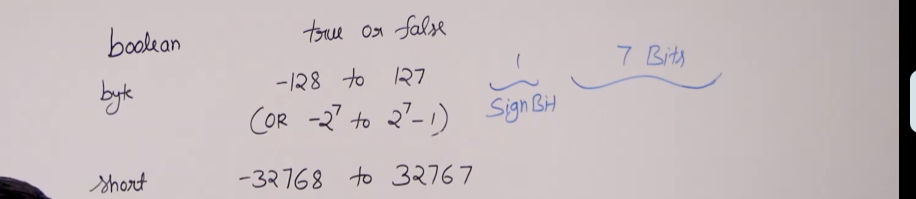 boolean true or false
byte -128 to 127 1 7 Bits
(OR -2⁷ to 2⁷-1) Sign Bit
short -32768 to 32767